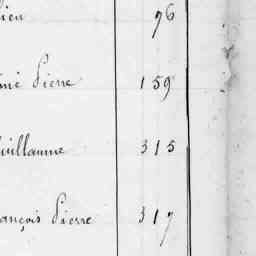 76
Pierre 159
Guillaume 315
François Pierre 317